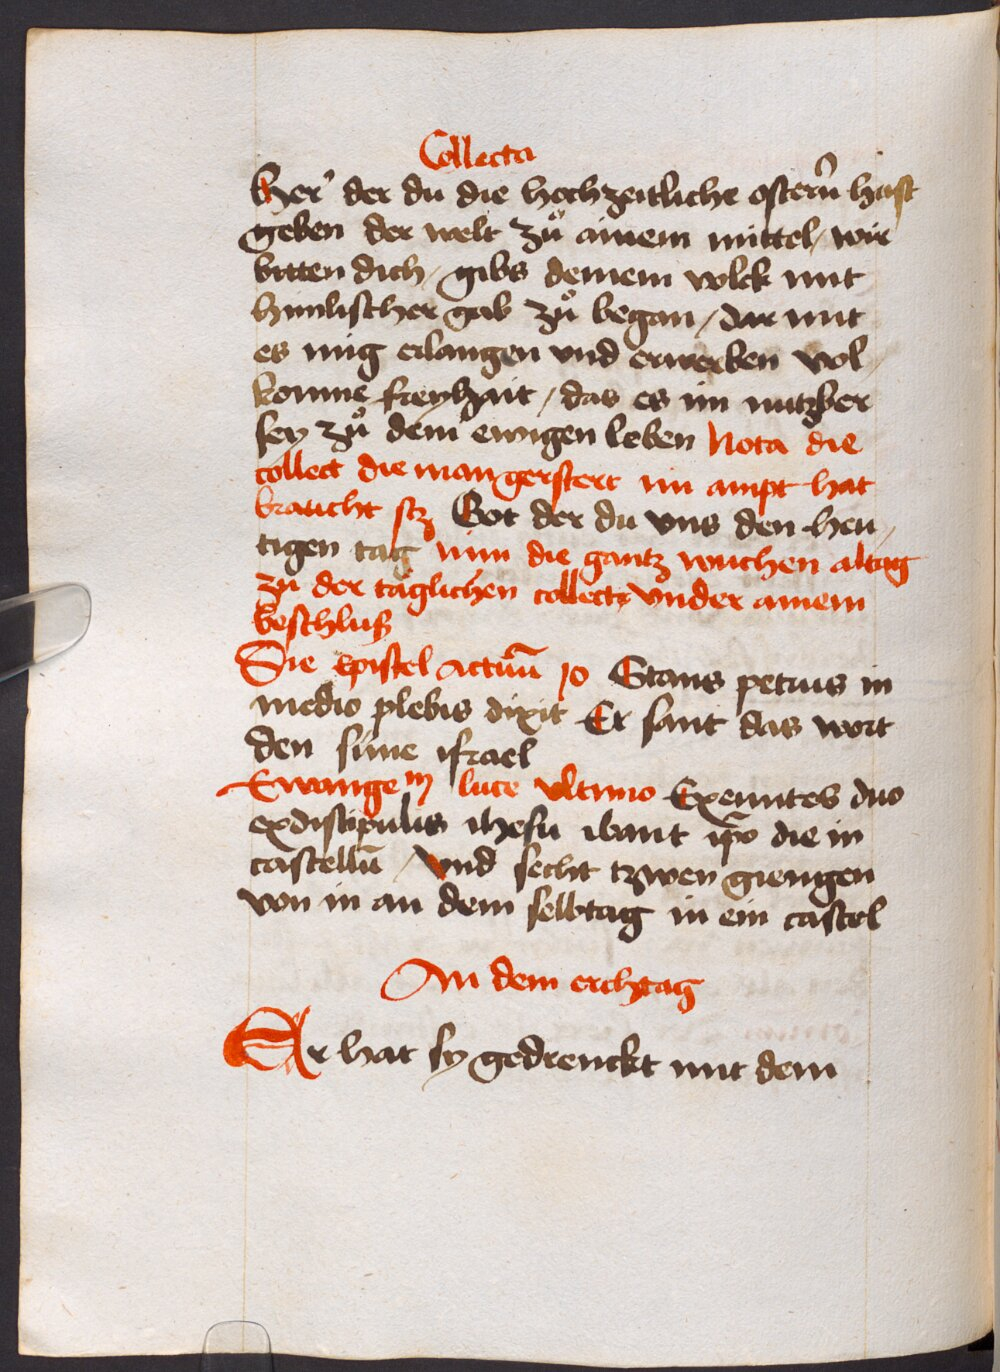 Collecta
Her' der du die hochzeitliche osterñ hast
geben der welt zů ainem mittel / wir
bitten dich / gibs deinem volck mit
himlischer gab zů began / dar mit
es mig erlangen vnd erwerben vol /
komne freyhait / das es im nutzber
sey zů dem ewigen leben Nota die
collect die man gerstert im ampt hat
braucht scz Got der du vns den heu /
tigen tag nim die gantz wuchen altag
zu der täglichen collectz vnder ainem
beschluß
Die epistel actuū 10 Stans petrus in
medio plebis dixit Er sant das wort
den süne israel
Ewangem luce vltimo Exeuntes duo
ex discipulis ihesu ibant ip̄o die in
castellū / vnd secht tzwen giengen
von in an dem selbtag in ein castel
An dem erchtag
Er hat sy gedrenckt mit dem